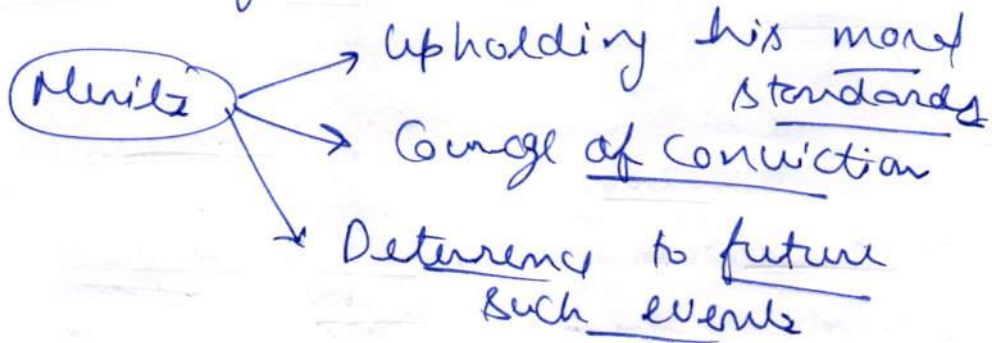 Merits
Upholding his moral
standards
Courage of Conviction
Deterrence to future
such events